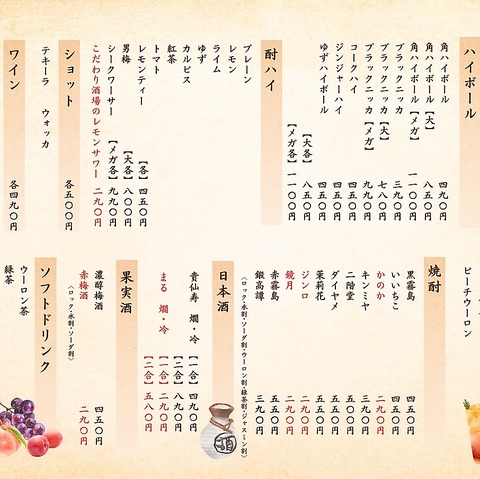 ハイボール
角ハイボール 四九〇円
角ハイボール【大】 八五〇円
角ハイボール【メガ】 一一〇〇円
ブラックニッカ 三九〇円
ブラックニッカ【大】 七八〇円
ブラックニッカ【メガ】 九九〇円
コークハイ 四五〇円
ジンジャーハイ 四五〇円
ゆずハイボール 四五〇円
【大各】 八五〇円
【メガ各】 一一〇〇円
酎ハイ
プレーン
レモン
ライム
ゆず
カルピス
紅茶
トマト
レモンティー 【各】四五〇円
男梅 【大各】八〇〇円
シークワーサー 【メガ各】九九〇円
こだわり酒場のレモンサワー 二九〇円
ショット 各五〇〇円
テキーラ ウォッカ
ワイン 各四九〇円
ピーチウーロン
焼酎
黒霧島 四五〇円
いいちこ 四五〇円
かのか 二九〇円
キンミヤ 三九〇円
二階堂 五五〇円
ダイヤメ 五五〇円
茉莉花 五五〇円
ジンロ 二九〇円
鏡月 二九〇円
赤霧島 五五〇円
鍛高譚 三九〇円
〈ロック・水割・ソーダ割・ウーロン割・緑茶割・ジャスミン割〉
日本酒
貴仙寿 燗・冷 【一合】四九〇円
【二合】八九〇円
まる 燗・冷 【一合】二九〇円
【二合】五八〇円
果実酒
濃醇梅酒 四五〇円
赤梅酒 二九〇円
〈ロック・水割・ソーダ割〉
ソフトドリンク
ウーロン茶
緑茶
酒